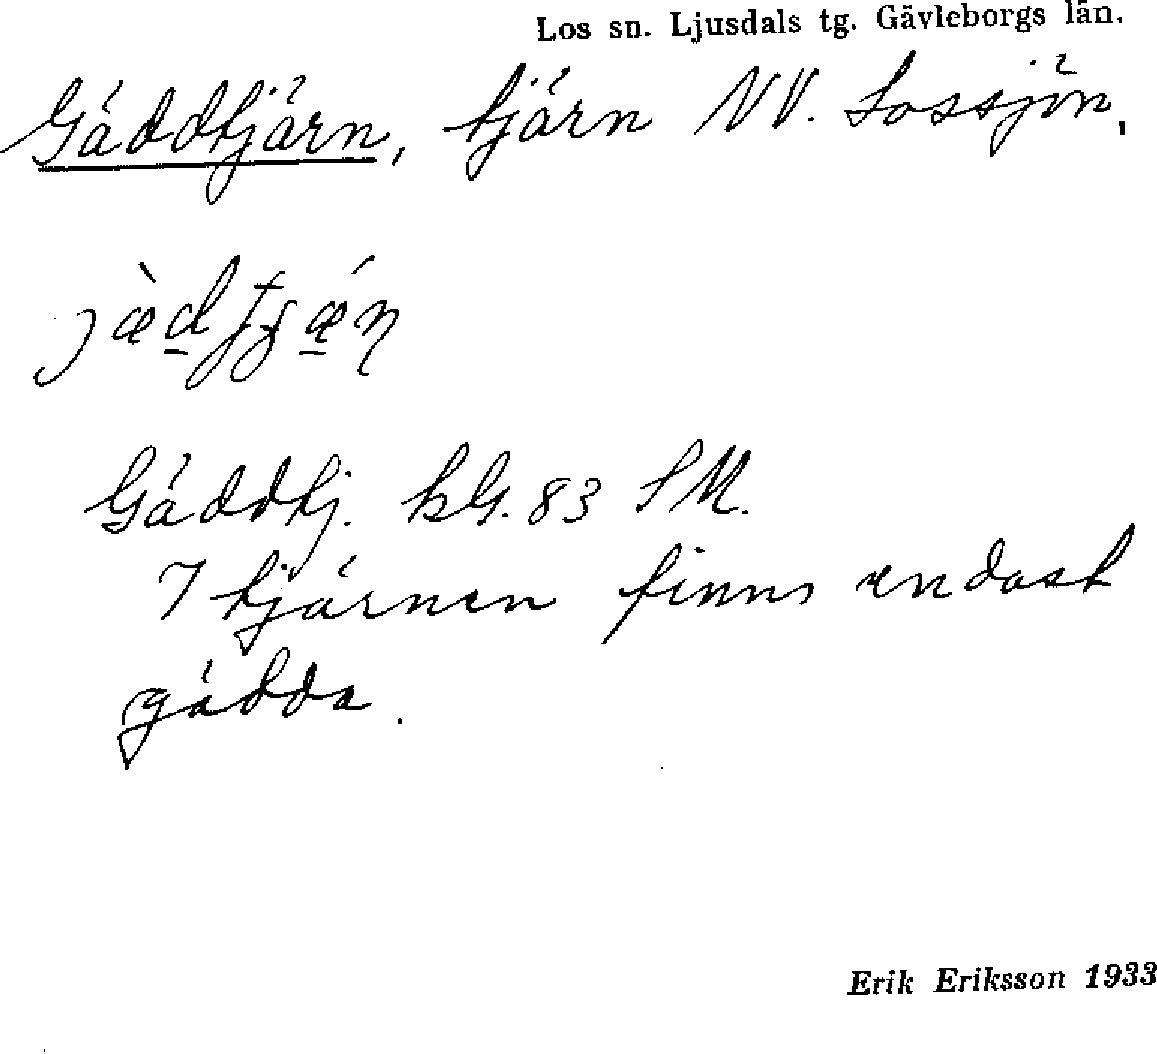 Los sn. Ljusdals tg. Gävleborgs län.
Gäddtjärn, tjärn NV. Lossjön.
Gäddtj. kG. 83 SM.
I tjärnen finns endast
gädda.
Erik Eriksson 1933